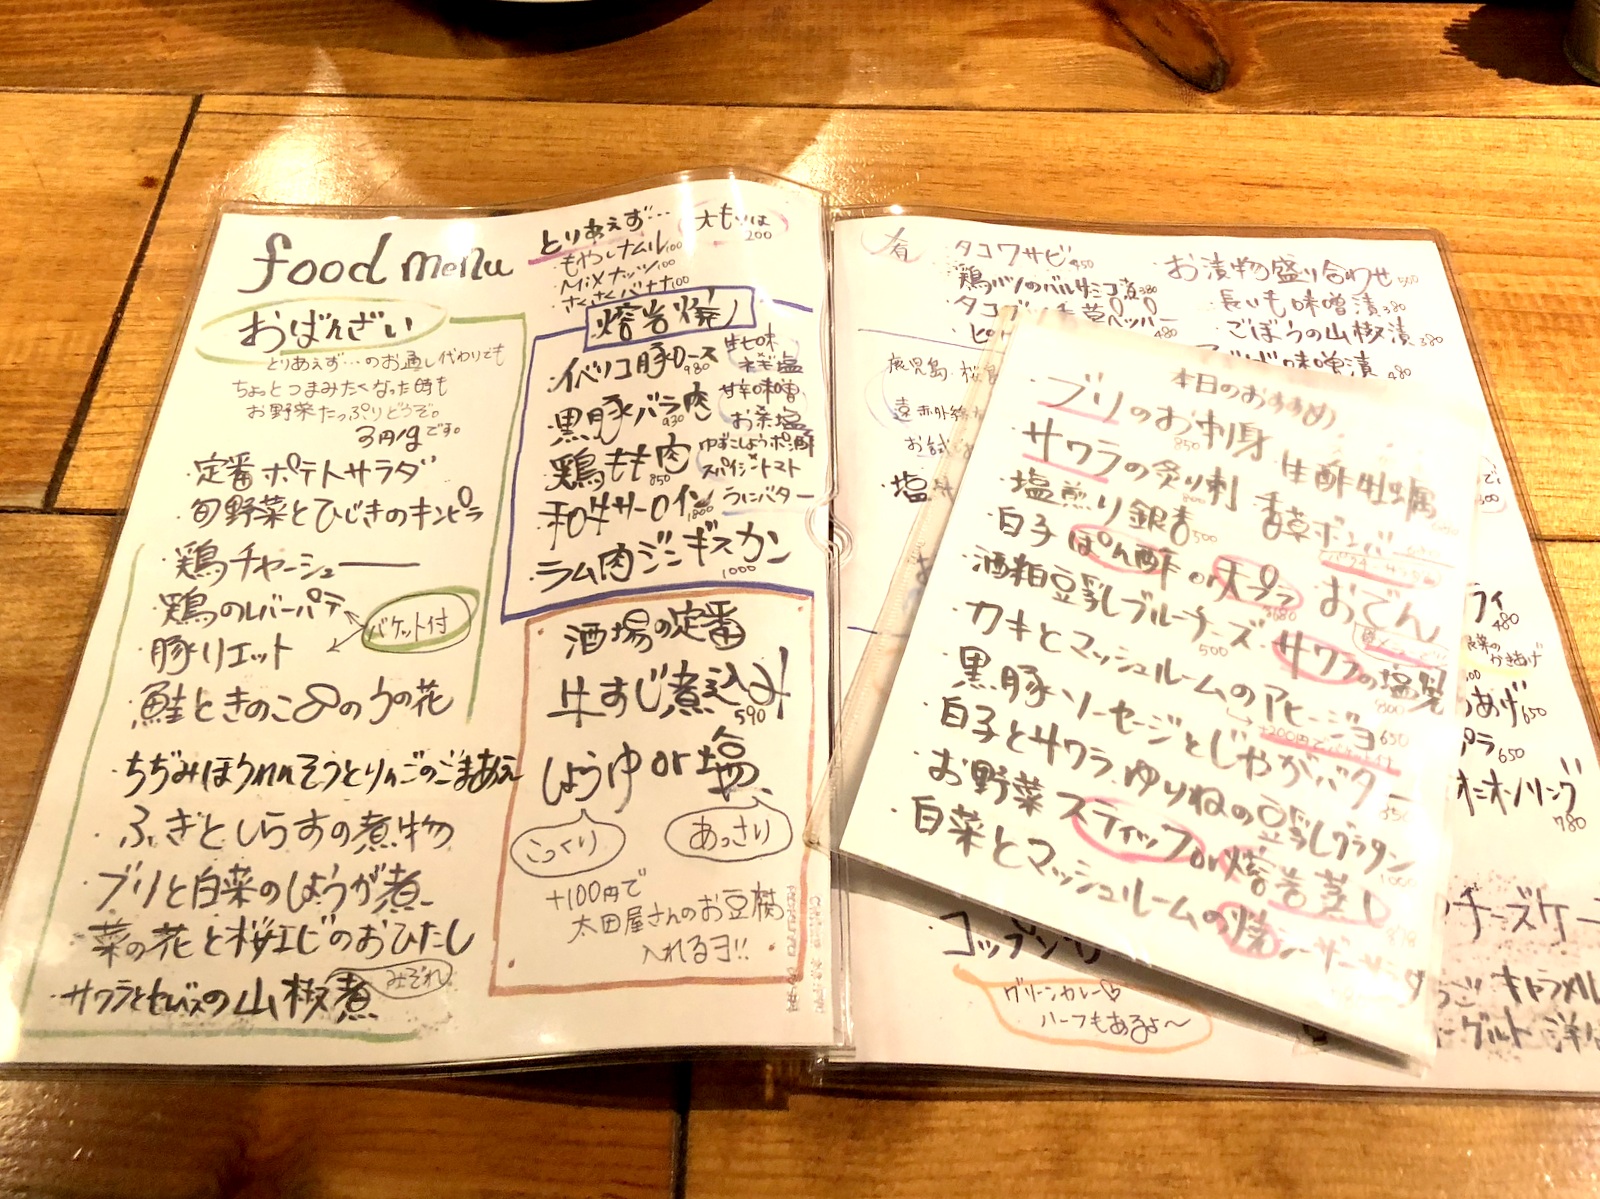 food menu
おばんざい
とりあえず…のお通し代わりでも
ちょっとつまみたくなった時も
お野菜たっぷりどうぞ。
3円/gです。
・定番ポテトサラダ
・旬野菜とひじきのキンピラ
・鶏チャーシュー
・鶏のレバーパテ
・豚リエット
バケット付
・鮭ときのこのうの花
・ちぢみほうれんそうとりんごのごまあえ
・ふきとしらすの煮物
・ブリと白菜のしょうが煮
・菜の花と桜エビのおひたし
・サワラとセビスの山椒煮
みぞれ
とりあえず…
大もりは
200
・もやしナムル100
・MIXナッツ100
・さくさくバナナ100
熔岩焼
・イベリコ豚ロース
980
・黒豚バラ肉
930
・鶏もも肉
850
・和牛サーロイン
1800
・ラム肉ジンギスカン
1000
生七味
ネギ塩
甘辛味噌
お茶塩
ゆずこしょうポン酢
スパイシートマト
うにバター
酒場の定番
牛すじ煮込み
590
しょうゆ or 塩
こっくり
あっさり
+100円で
太田屋さんのお豆腐
入れるヨ!!
・タコワサビ
450
・鶏ハツのバルサミコ煮380
480
・お漬物盛り合わせ500
・長いも味噌漬380
・ごぼうの山椒漬380
味噌漬480
鹿児島・桜島
遠赤外線
本日のおすすめ
・ブリのお刺身
850
・サワラの炙り刺
800
・塩煎り銀杏500
・白子ぽん酢 or 天プラ
680
・酒粕豆乳ブルーチーズ
500
・カキとマッシュルームのアヒージョ
650
+200円でバケット付
・黒豚ソーセージとじゃがバター
850
・白子とサワラ、ゆりねの豆乳グラタン
1000
・お野菜スティック or 熔岩蒸し
・白菜とマッシュルームの焼シーザーサラダ
生酢牡蠣
香草ボンバー
おでん
サワラの塩焼
800
480
かきあげ
あげ650
650
オニオンリング
780
グリーンカレー♡
ハーフもあるよ〜
チーズケー
キャラメル